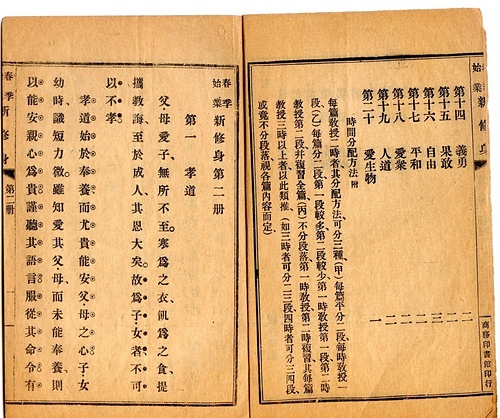 始業 新修身
第十四 義勇 二
第十五 果敢 二
第十六 自由 二
第十七 平和 二
第十八 愛衆 二
第十九 人道 二
第二十 愛生物 一
時間分配方法 附
每篇敎授二時者其分配方法可分三種(甲)每篇平分二段每時敎授一
段(乙)每篇分二段第一段較多第二段較少第一時敎授第一段第二時
敎授第二段幷複習全篇(丙)不分段落第一時敎授第二時複習其每篇
敎授三時以上者以此類推(如三時者可分二三段四時者可分三四段
或竟不分段落視各篇內容而定)
商務印書館印行
春季始業 新修身第二册
第一 孝道
父母愛子無所不至。寒爲之衣。飢爲之食。提
攜敎誨至於成人。其恩大矣。故爲子女者不可
以不孝。
孝道始於奉養而尤貴能安父母之心子女
幼時識短力微。雖知愛其父母而未能奉養則
以能安親心爲貴謹聽其語言服從其命令有
春季 新修身 第二册